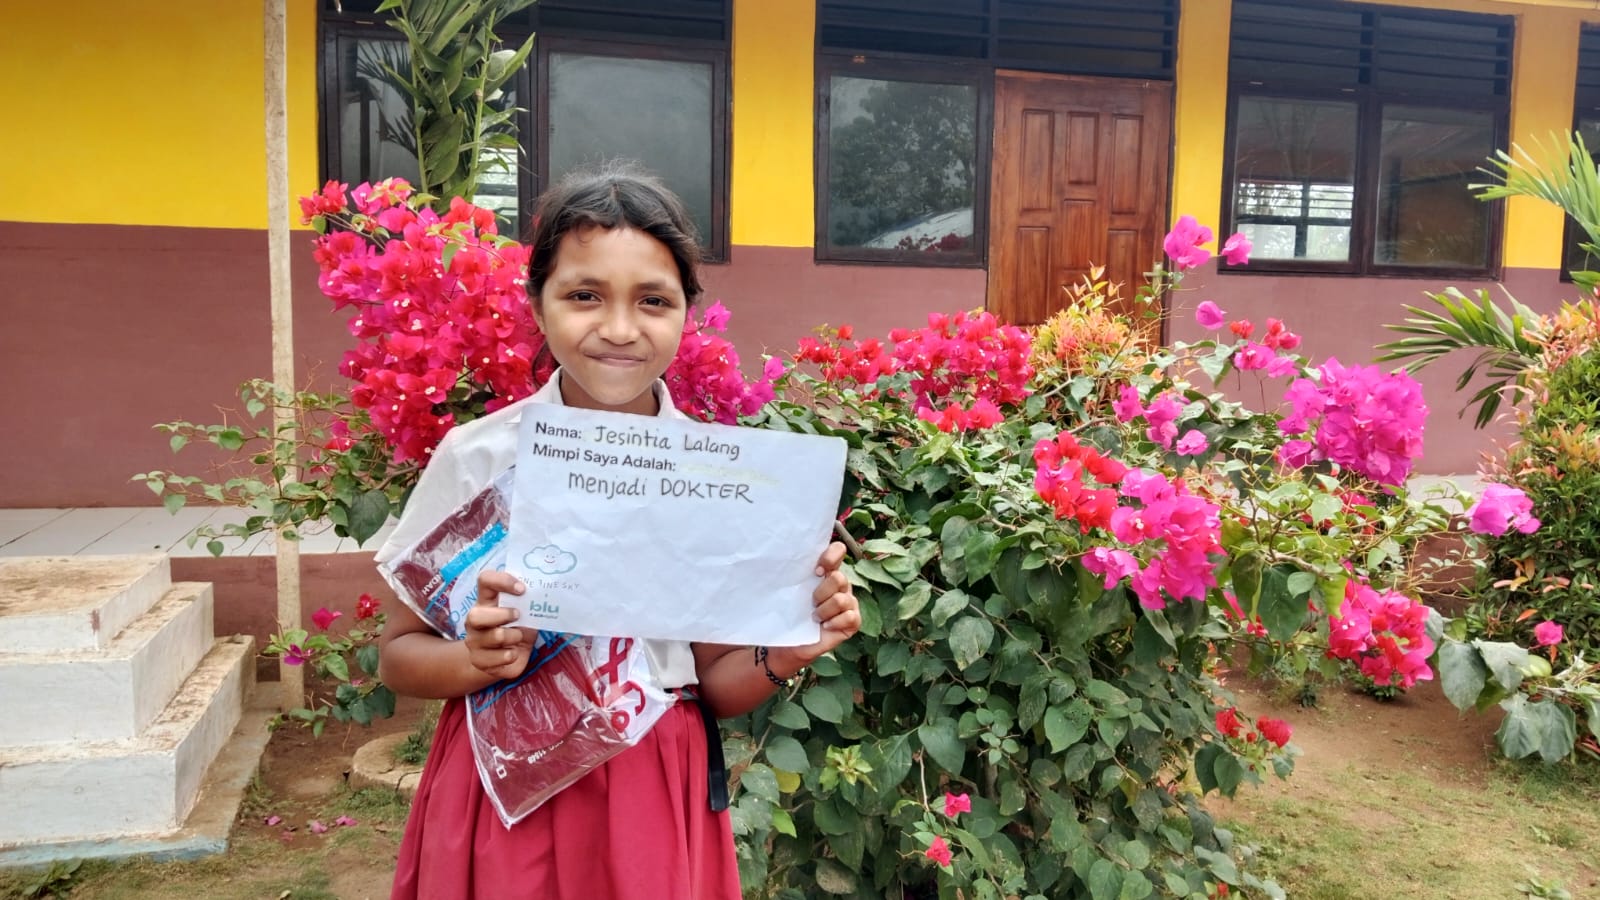 Nama: Jesintia Lalang
Mimpi Saya Adalah:
menjadi DOKTER
ONE FINE SKY
x
blu